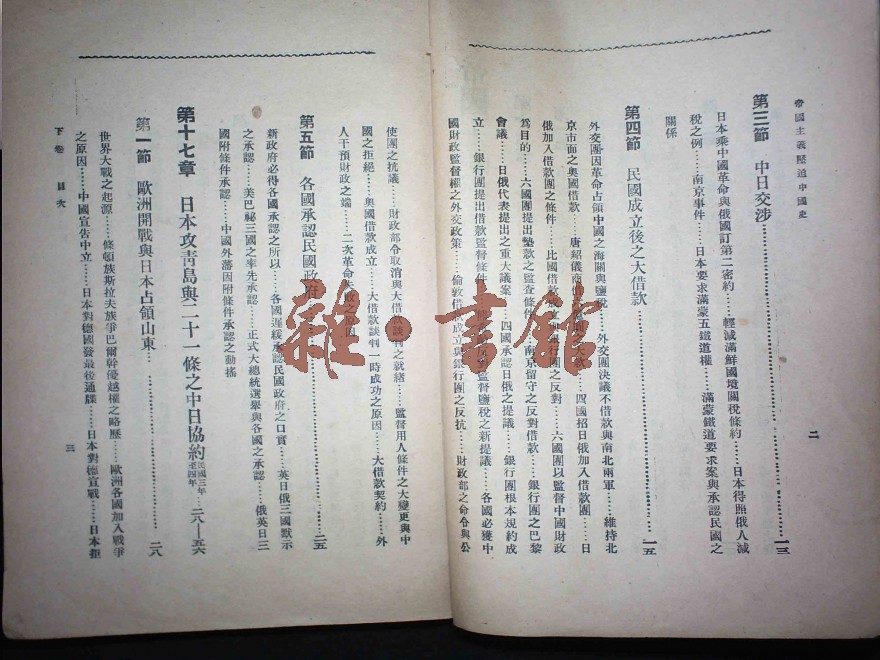 帝國主義壓迫中國史
二
第三節 中日交涉……一三
日本乘中國革命與俄國訂第二密約……輕減滿鮮國境關稅條約……日本得照俄人減
稅之例……南京事件……日本要求滿蒙五鐵道權……滿蒙鐵道要求案與承認民國之
關係
第四節 民國成立後之大借款……一五
外交團因革命占領中國之海關與鹽稅……外交團決議不借款與南北兩軍……維持北
京市面之奧國借款……唐紹儀南之大款……四國招日俄加入借款團……日
俄加入借款團之條件……比國借款成立與銀行團之反對……六國團以監督中國財政
為目的……六國團提出墊款之監查條件……南京留守之反對借款……銀行團之巴黎
會議……日俄代表提出之重大議案……四國承認日俄之提議……銀行團根本規約成
立……銀行團提出借款監督條件……監督鹽稅之新提議……各國必獲中
國財政監督權之外交政策……倫敦借款成立與銀行團之反抗……財政部之命令與公
使團之抗議……財政部令取消與大借款談判之就緒……監督用人條件之大變更與中
國之拒絕……奧國借款成立……大借款談判一時成功之原因……大借款契約……外
人干預財政之端……二次革命失敗之原因
第五節 各國承認民國政府……二五
新政府必得各國承認之所以……各國遲緩承認民國政府之口實……英日俄三國默示
之承認……美巴祕三國之率先承認……正式大總統選舉與各國之承認……俄英日三
國附條件承認……中國外藩因附條件承認之動搖
第十七章 日本攻青島與二十一條之中日協約民國三年至四年二八—五六
第一節 歐洲開戰與日本占領山東……二八
世界大戰之起源……條頓族斯拉夫族爭巴爾幹優越權之略歷……歐洲各國加入戰爭
之原因……中國宣告中立……日本對德國發最後通牒……日本對德宣戰……日本拒
下卷 目次
三
雜·書館